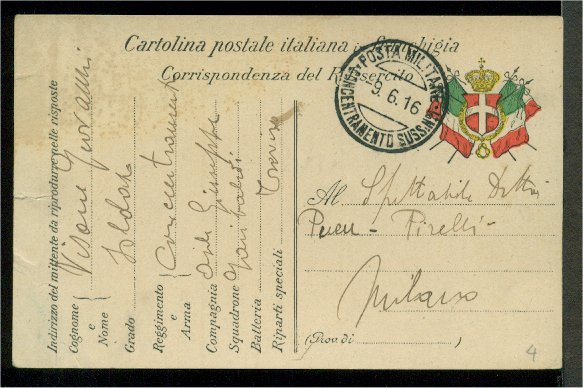 Cartolina postale italiana in franchigia
Corrispondenza del R. Esercito
POSTA MILITARE
CONCENTRAMENTO SUSSA No
9.6.16
Indirizzo del mittente da riprodurre nelle risposte
Cognome e Nome { Visone Giovanni
Grado Soldato
Reggimento e Arma { Concentrament
Compagnia Giuseppe
Squadrone Garibaldi
Batteria Treviso
Riparti speciali
Al Spettabile Ditta
Pneu - Pirelli -
Milano
(Prov. di )
4